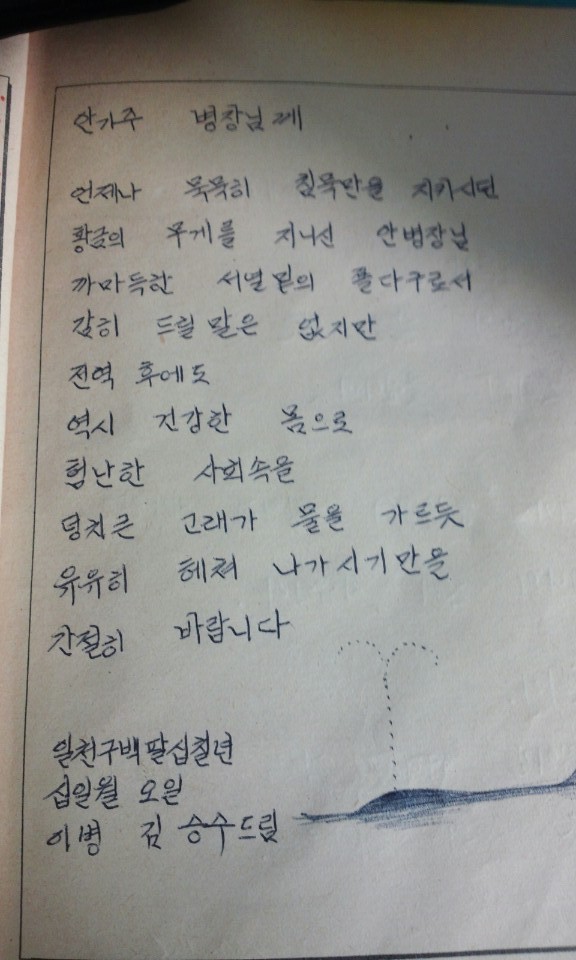 안가주 병장님께
언제나 묵묵히 침묵만을 지키시던
황금의 무게를 지니신 안병장님
까마득한 서열밑의 졸다구로서
감히 드릴 말은 없지만
전역 후에도
역시 건강한 몸으로
험난한 사회속을
덩치큰 고래가 물을 가르듯
유유히 헤쳐 나가시기만을
간절히 바랍니다
일천구백팔십칠년
십일월 오일
이병 김 승수드림